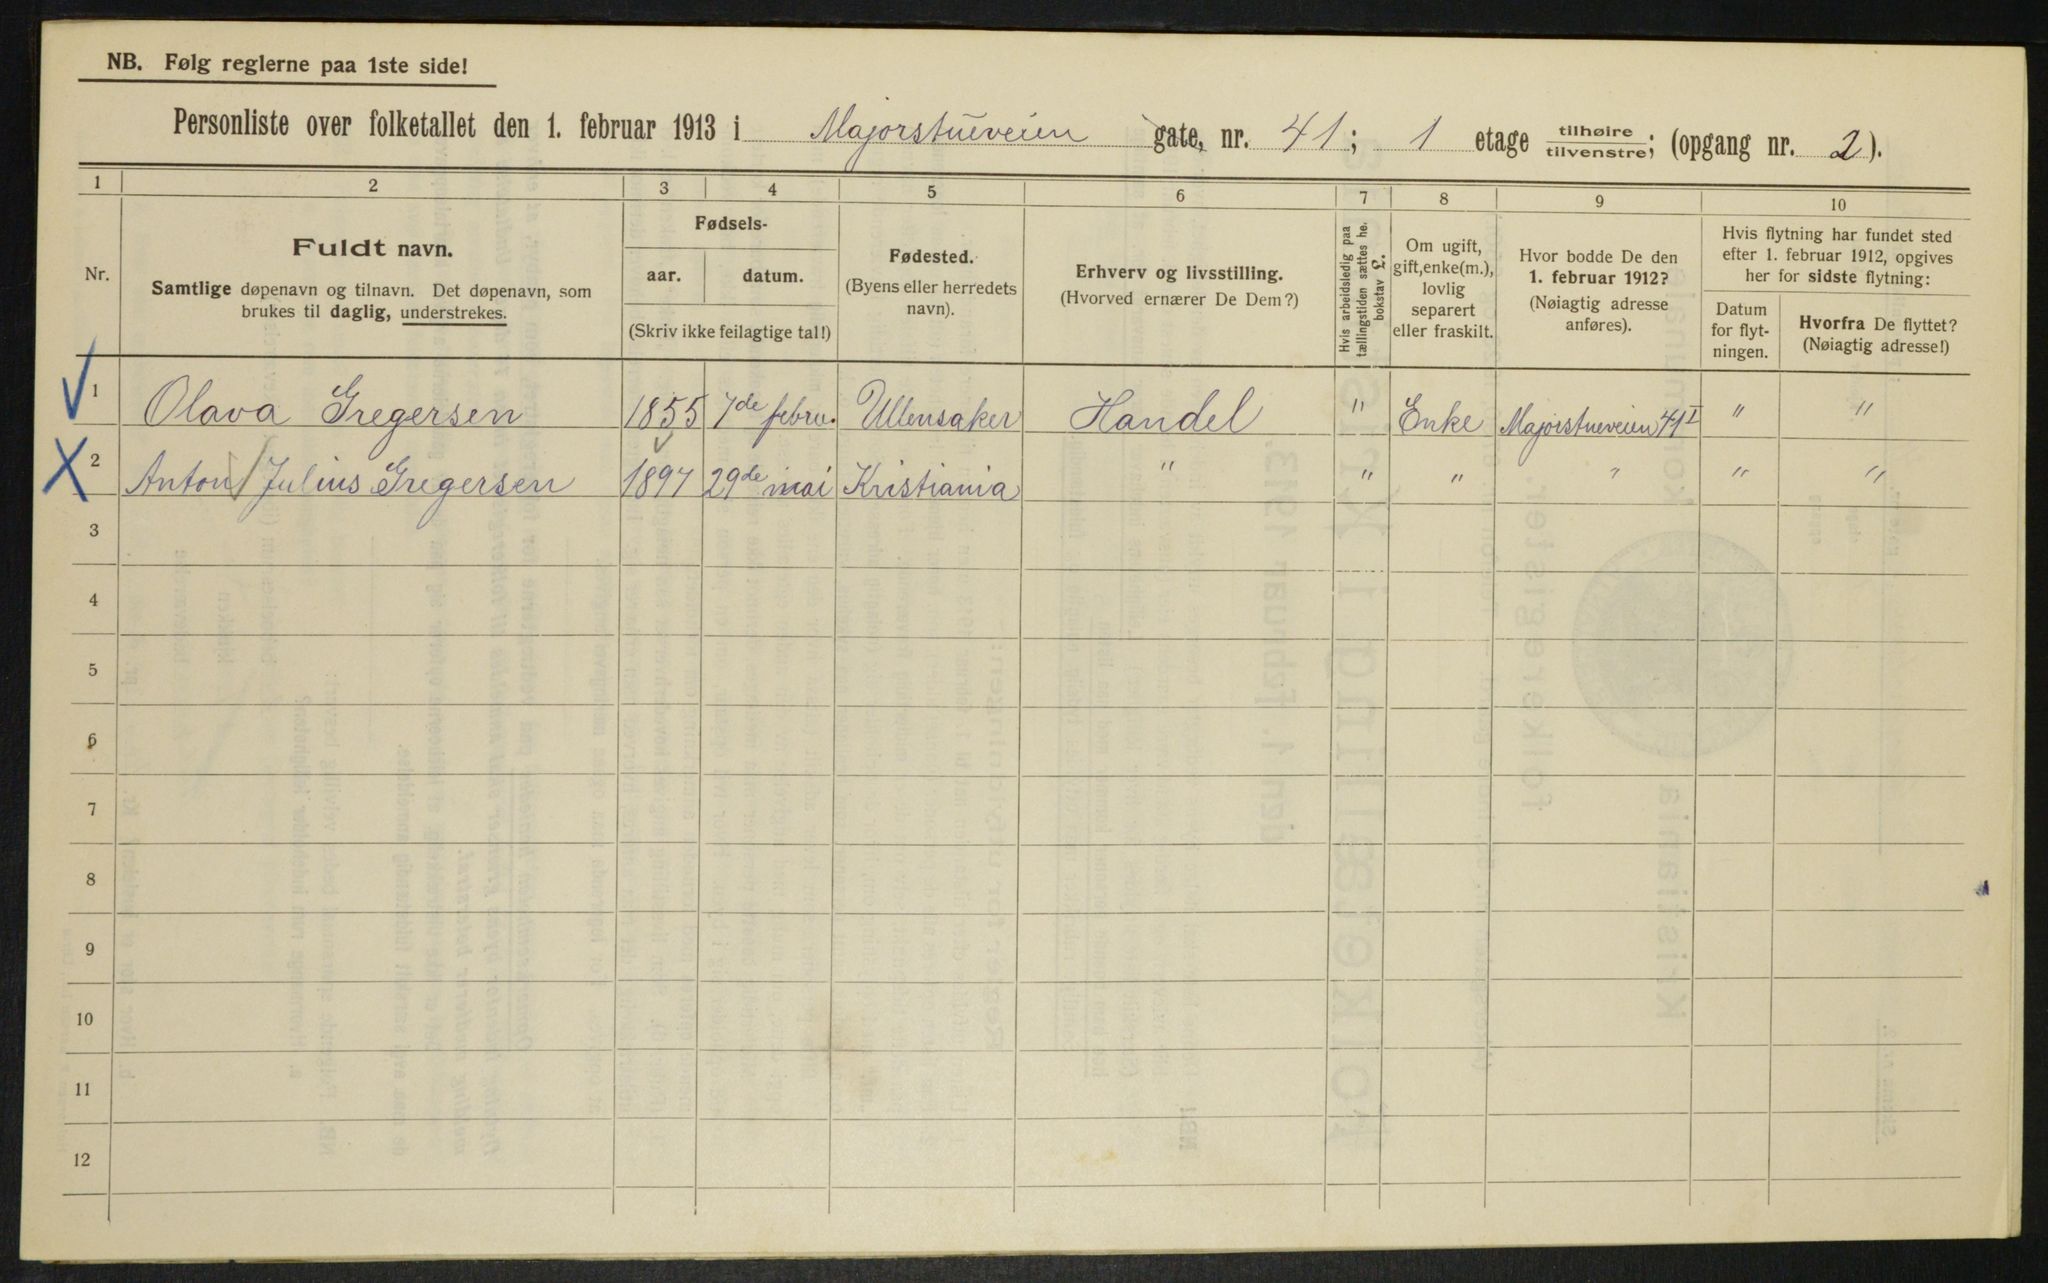 NB. Følg reglerne paa 1ste side!
Personliste over folketallet den 1. februar 1913 i Majorstueveien gate, nr. 41; 1 etage tilhøire tilvenstre; (opgang nr. 2).
1 2 3 4 5 6 7 8 9 10
Nr.
Fuldt navn.
Samtlige døpenavn og tilnavn. Det døpenavn, som
brukes til daglig, understrekes.
Fødsels-
aar. datum.
(Skriv ikke feilagtige tal!)
Fødested.
(Byens eller herredets
navn).
Erhverv og livsstilling.
(Hvorved ernærer De Dem?)
Hvis arbeidsledig paa
tællingstiden sættes he.
bokstav L.
Om ugift,
gift, enke(m.),
lovlig
separert
eller fraskilt.
Hvor bodde De den
1. februar 1912?
(Nøiagtig adresse
anføres).
Hvis flytning har fundet sted
efter 1. februar 1912, opgives
her for sidste flytning:
Datum
for flyt-
ningen.
Hvorfra De flyttet?
(Nøiagtig adresse!)
1 Olava Gregersen 1855 7de febru. Ullensaker Handel " Enke Majorstueveien 41 I " "
2 Anton Julius Gregersen 1897 29de mai Kristiania " " " " " "
3
4
5
6
7
8
9
10
11
12